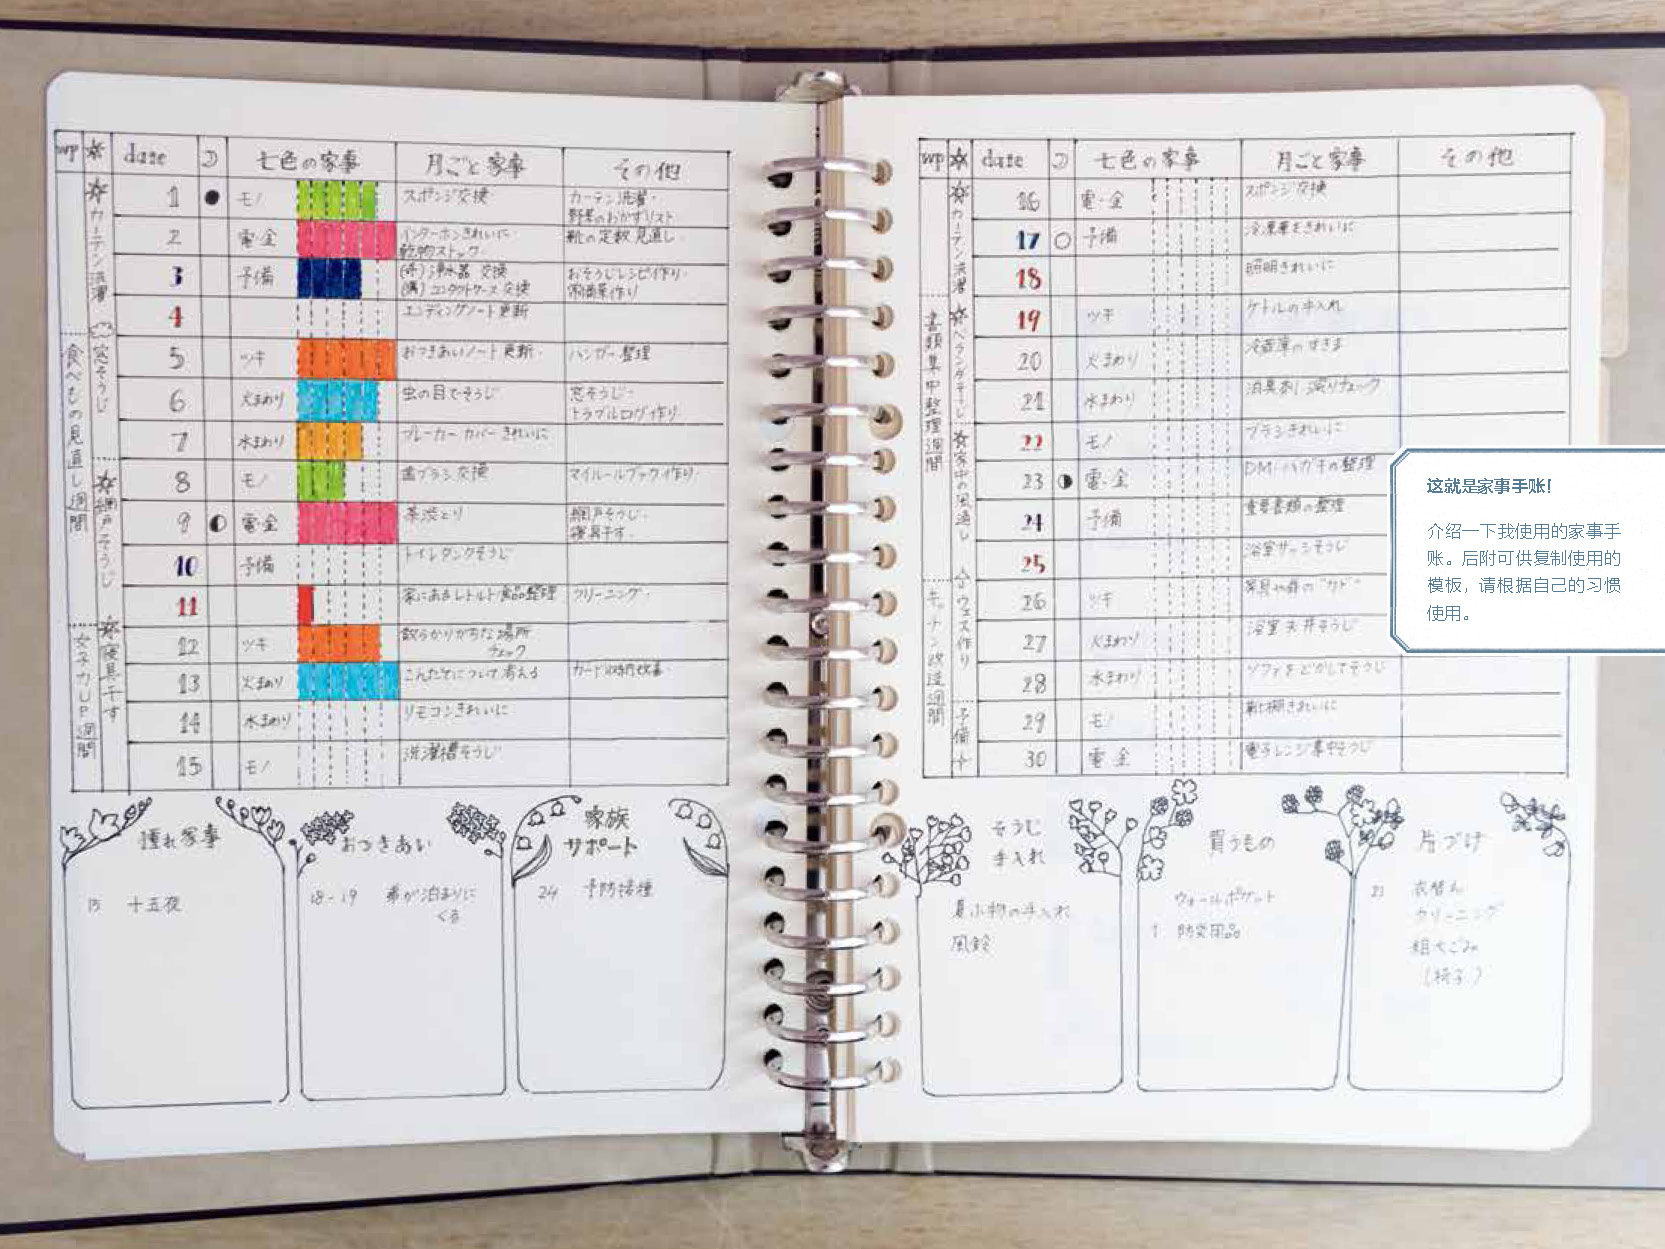 wp date 七色の家事 月ごと家事 その他
カーテン洗濯
窓そうじ
網戸そうじ
寝具干す
食べもの見直し週間
女子力UP週間
1 モノ スポンジ交換 カーテン洗濯・
野菜のおかずリスト
2 電・金 インターホンきれいに・ 靴の定数見直し・
乾物ストック・
3 予備 浄水器 交換 おそうじレシピ作り・
コンタクトケース交換 常備菜作り
4 エンディングノート更新
5 ツキ おつきあいノート更新・ ハンガー整理
6 火まわり 虫の目でそうじ 窓そうじ・
トラブルログ作り
7 水まわり ブレーカーカバーきれいに
8 モノ 歯ブラシ交換 マイルールブック作り・
9 電・金 茶渋とり 網戸そうじ・
寝具干す・
10 予備 トイレタンクそうじ
11 家にあるレトルト食品整理 クリーニング・
12 ツキ 散らかりがちな場所
チェック
13 火まわり こんだてについて考える カード収納改善・
14 水まわり リモコンきれいに
15 モノ 洗濯槽そうじ
憧れ家事
15 十五夜
おつきあい
18-19 弟が泊まりに
くる
家族
サポート
24 予防接種
wp date 七色の家事 月ごと家事 その他
カーテン洗濯
ベランダそうじ
家中の風通し
ウエス作り
予備
書類集中整理週間
キッチン改造週間
16 電・金 スポンジ交換
17 予備 冷凍庫をきれいに
18 照明きれいに
19 ツキ ケトルの手入れ
20 火まわり 冷蔵庫のすきま
21 水まわり 消臭剤 減りチェック
22 モノ ブラシきれいに
23 電・金 DM・ハガキの整理
24 予備 重要書類の整理
25 浴室サッシそうじ
26 ツキ
27 火まわり 浴室天井そうじ
28 水まわり ソファをどかしてそうじ
29 モノ 靴棚きれいに
30 電 金 電子レンジ集中そうじ
そうじ
手入れ
夏小物の手入れ
風鈴
買うもの
ウォールポケット
防災用品
片づけ
衣替え
クリーニング
粗大ごみ
(椅子)
这就是家事手账！
介绍一下我使用的家事手
账。后附可供复制使用的
模板，请根据自己的习惯
使用。